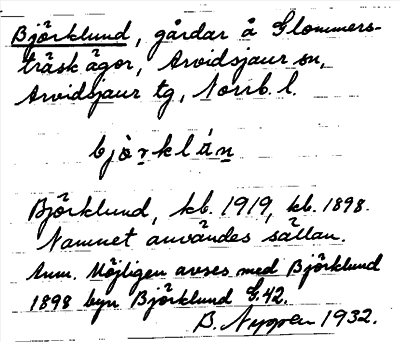 Björklund, gårdar å Glommers-
träsk ägor, Arvidsjaur sn,
Arvidsjaur tg, Norrb. l.
bjö̀rklán
Björklund, kb. 1919, kb. 1898.
Namnet användes sällan.
Anm. Möjligen avses med Björklund
1898 byn Björklund G.42.
B. Nygren 1932.